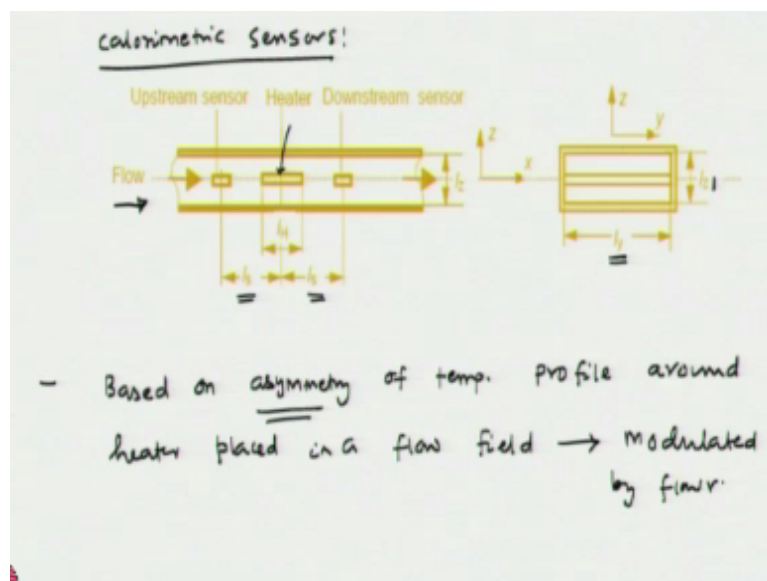 calorimetric sensors!
Upstream sensor Heater Downstream sensor
z
z y
Flow x
lz lz
lH
ly
ls ls
- Based on asymmetry of temp. profile around
heater placed in a flow field → modulated
by flow.